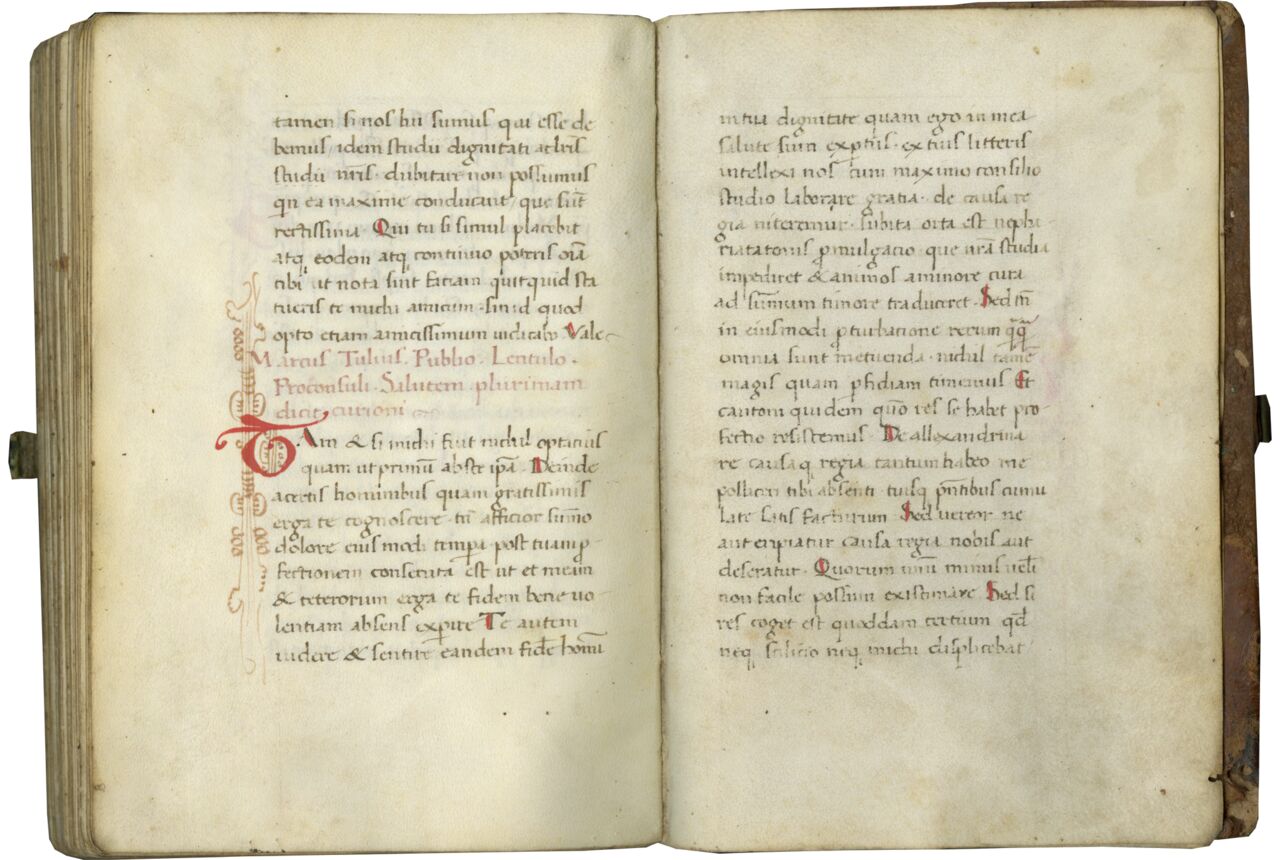 tamen si nos hii sumus qui esse de
bemus · idem studii dignitati ac lr̄is
studii nr̄is · dubitare non possumus
qn̄ ea maxime conducant · que sūt
rectissima · Qui tu si simul placebit
atq; eodem atq; continuo poteris oīa
tibi ut nota sint faciam quitquid sta
tueris te michi amicum · sin id quod
opto etiam amicissimum iudicabo Vale
Marcus Tulius Publio · Lentulo ·
Proconsuli · Salutem plurimam
dicit curioni
TAm & si michi fuit nichil optacius
quam ut primū abs te ip̄a Deinde
a ceteris hominibus quam gratissimis
erga te cognoscere · tn̄ afficior sūmo
dolore eiusmodi temp̄a post tuam p
fectionem consecuta est ut et meam
& ceterorum erga te fidem beneuo
lentiam absens expirere Te autem
uidere & sentire eandem fidē homū
in tua dignitate quam ego in mea
salute sum exptus · ex tuis litteris
intellexi nos cum maximo consilio
studio laborare gratia · de causa re
gia niteremur · subita orta est nepha
ria catonis p mulgacio · que nr̄a studia
impediret & animos a minore cura
ad sūmum timore traduceret · Sed tn̄
in eiusmodi pturbatione rerum qq̄
omnia sunt metuenda · nichil tamē
magis quam pfidiam timemus Et
catoni quidem quō res se habet pro
fecto resistemus · De allexandrina
re causaq; regia tantum habeo me
polliceri tibi absenti · tuisq; pn̄tibus cumu
late satis facturum · Sed uereor ne
aut eripiatur causa regia nobis aut
deseratur · Quorum utrū minus uelī
non facile possum existimare Sed si
res coget est quoddam tertium qd̄
neq; selicio neq; michi displicebat